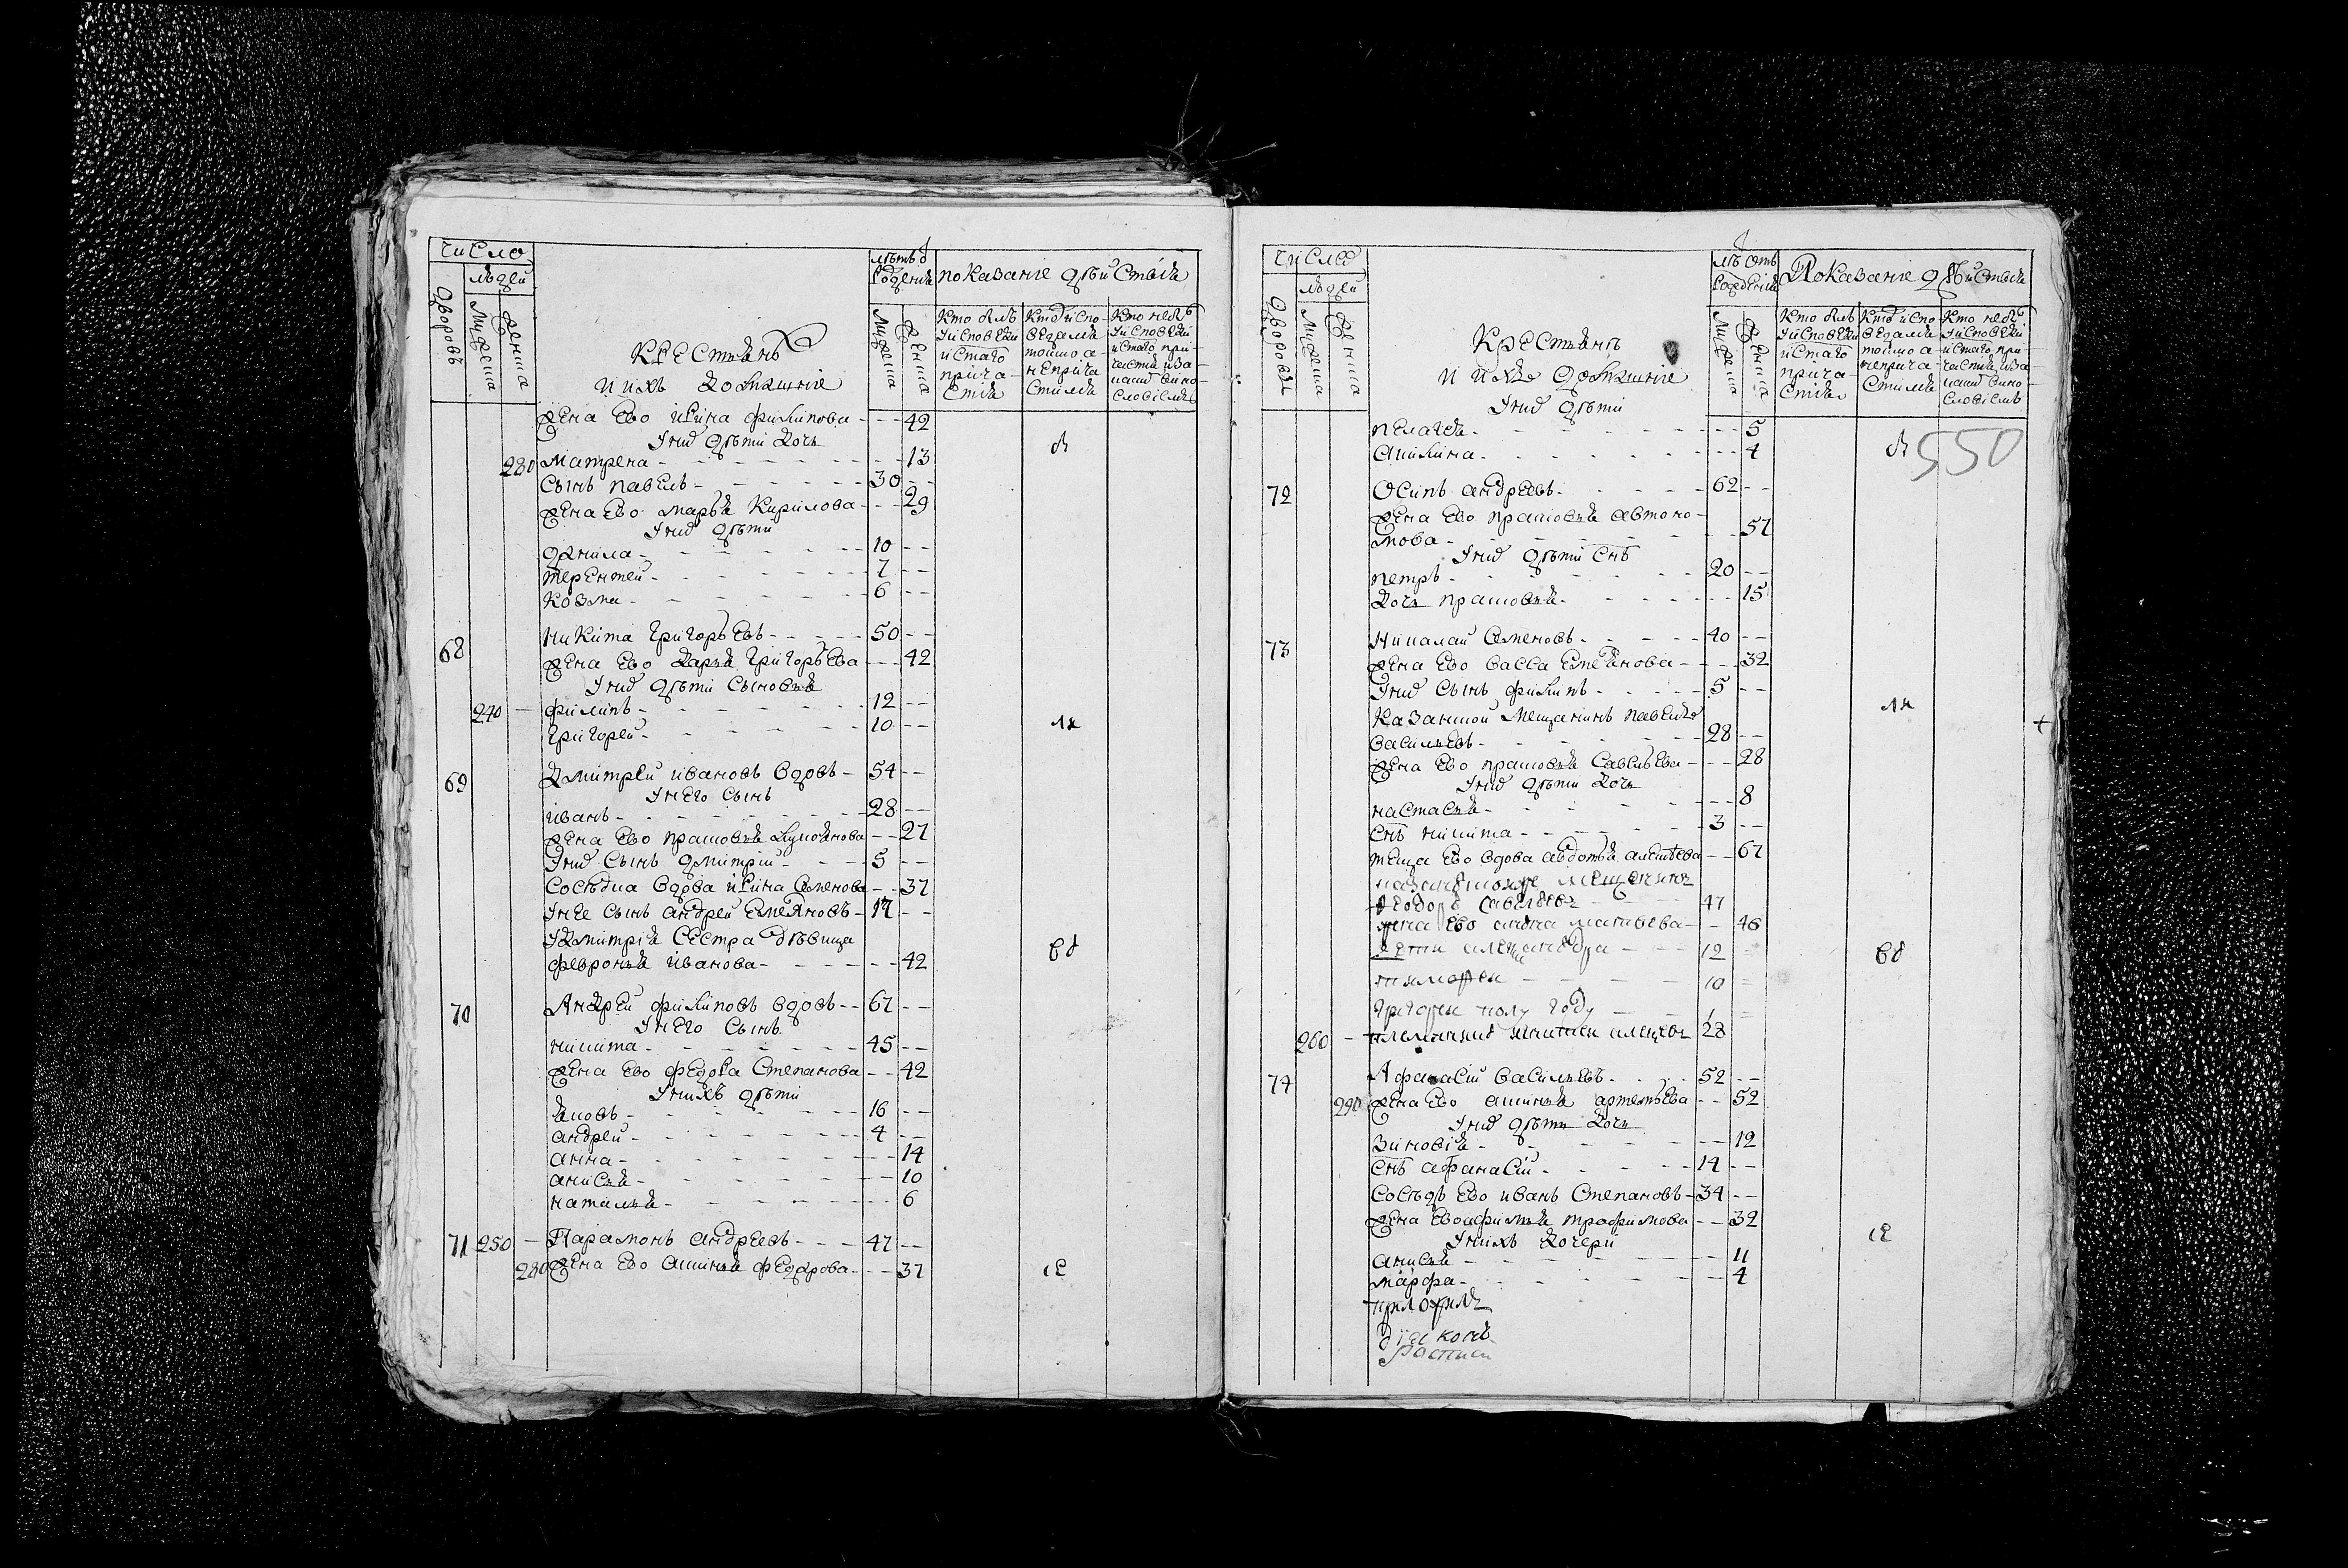 число
людей
дворовъ
мужеска
женска
Крестьянъ
и ихъ домашние
лѣтъ от рождения
мужеска
женска
показание дѣйства
Кто былъ
у исповеди
и стаго
прича-
стия
Кто испо-
ведался
токмо а
не прича
стился
Кто не былъ
у исповеди
и стаго при-
частия и за
каким вино-
словиемъ
жена Ево ирина филипова - - - 42
У них дѣти дочь
280 матрена - 13
сынъ павелъ - 30 - -
жена Ево марья Кирилова - - - 29
У них дѣти
данила - 10 - -
терентей - 7 - -
козма - 6 - -
68 никита григорьевъ - 50 - -
жена Ево дарья григорьева - - - 42
У них дѣти сыновья
240 - филипъ - 12 - -
григорей - 10 - -
69 дмитрей ивановъ вдовъ - 54 - -
У него сынъ
иванъ - 28 - -
жена Ево прасковья - - 27
У них сынъ дмитрий - 5 - -
соседка вдова ирина семенова - - 37
У нее сынъ андрей Емельяновъ - 17 - -
У дмитрия сестра дѣвица
февронья иванова - - - 42
70 Андрей филиповъ вдовъ - - 67 - -
У него сынъ
никита - 45 - -
жена Ево федора степанова - - 42
У нихъ дѣти
яковъ - 16 - -
андрей - 4 - -
анна - 14
анисья - 10
наталья - 6
71 250 - Парамонъ андреевъ - 47 - -
280 жена Ево аксинья федорова - - - 37
число
людей
дворовъ
мужеска
женска
Крестьянъ
и ихъ домашние
У них дѣти
лѣтъ отъ рождения
мужеска
женска
Показание дѣйства
Кто былъ
у исповеди
и стаго
прича-
стия
Кто испо-
ведался
токмо а
неприча-
стился
Кто не былъ
у исповеди
и стаго при-
частия и за-
каким вино-
словиемъ
550
пелагея - 5
акилина - 4
72 Осипъ андреевъ - 62 - -
жена Ево прасковья автоно-
мова - 57
У них дѣти снъ
петръ - 20 - -
дочь прасковья - 15
73 николай семеновъ - 40 - -
жена Ево васса Емельянова - - - 32
У них сынъ филипъ - 5 - -
казанской мещанинъ павелъ
васильевъ - 28 - -
жена Ево прасковья савельева - - - 28
У них дѣти дочь
настасья - 8
снъ никита - 3 - -
теща Ево вдова авдотья алексѣева - - 67
мещенинъ
федоръ савельевъ 47
жена Ево матвѣева - - 46
дети александра - 12 =
тимофеи - 10 =
григореи полу году - 1 =
260 - племянник алексѣевъ 28
74 Афанасий васильевъ - 52 - -
290 жена Ево аксинья артемьева - - 52
У них дѣти дочь
зиновия - 12
снъ афанасий - 14 - -
сосѣдъ Ево иванъ степановъ - 34 - -
жена Ево афимья трофимова - - 32
У нихъ дочери
анисья - 11
марфа - 4
приложилъ
диаконъ